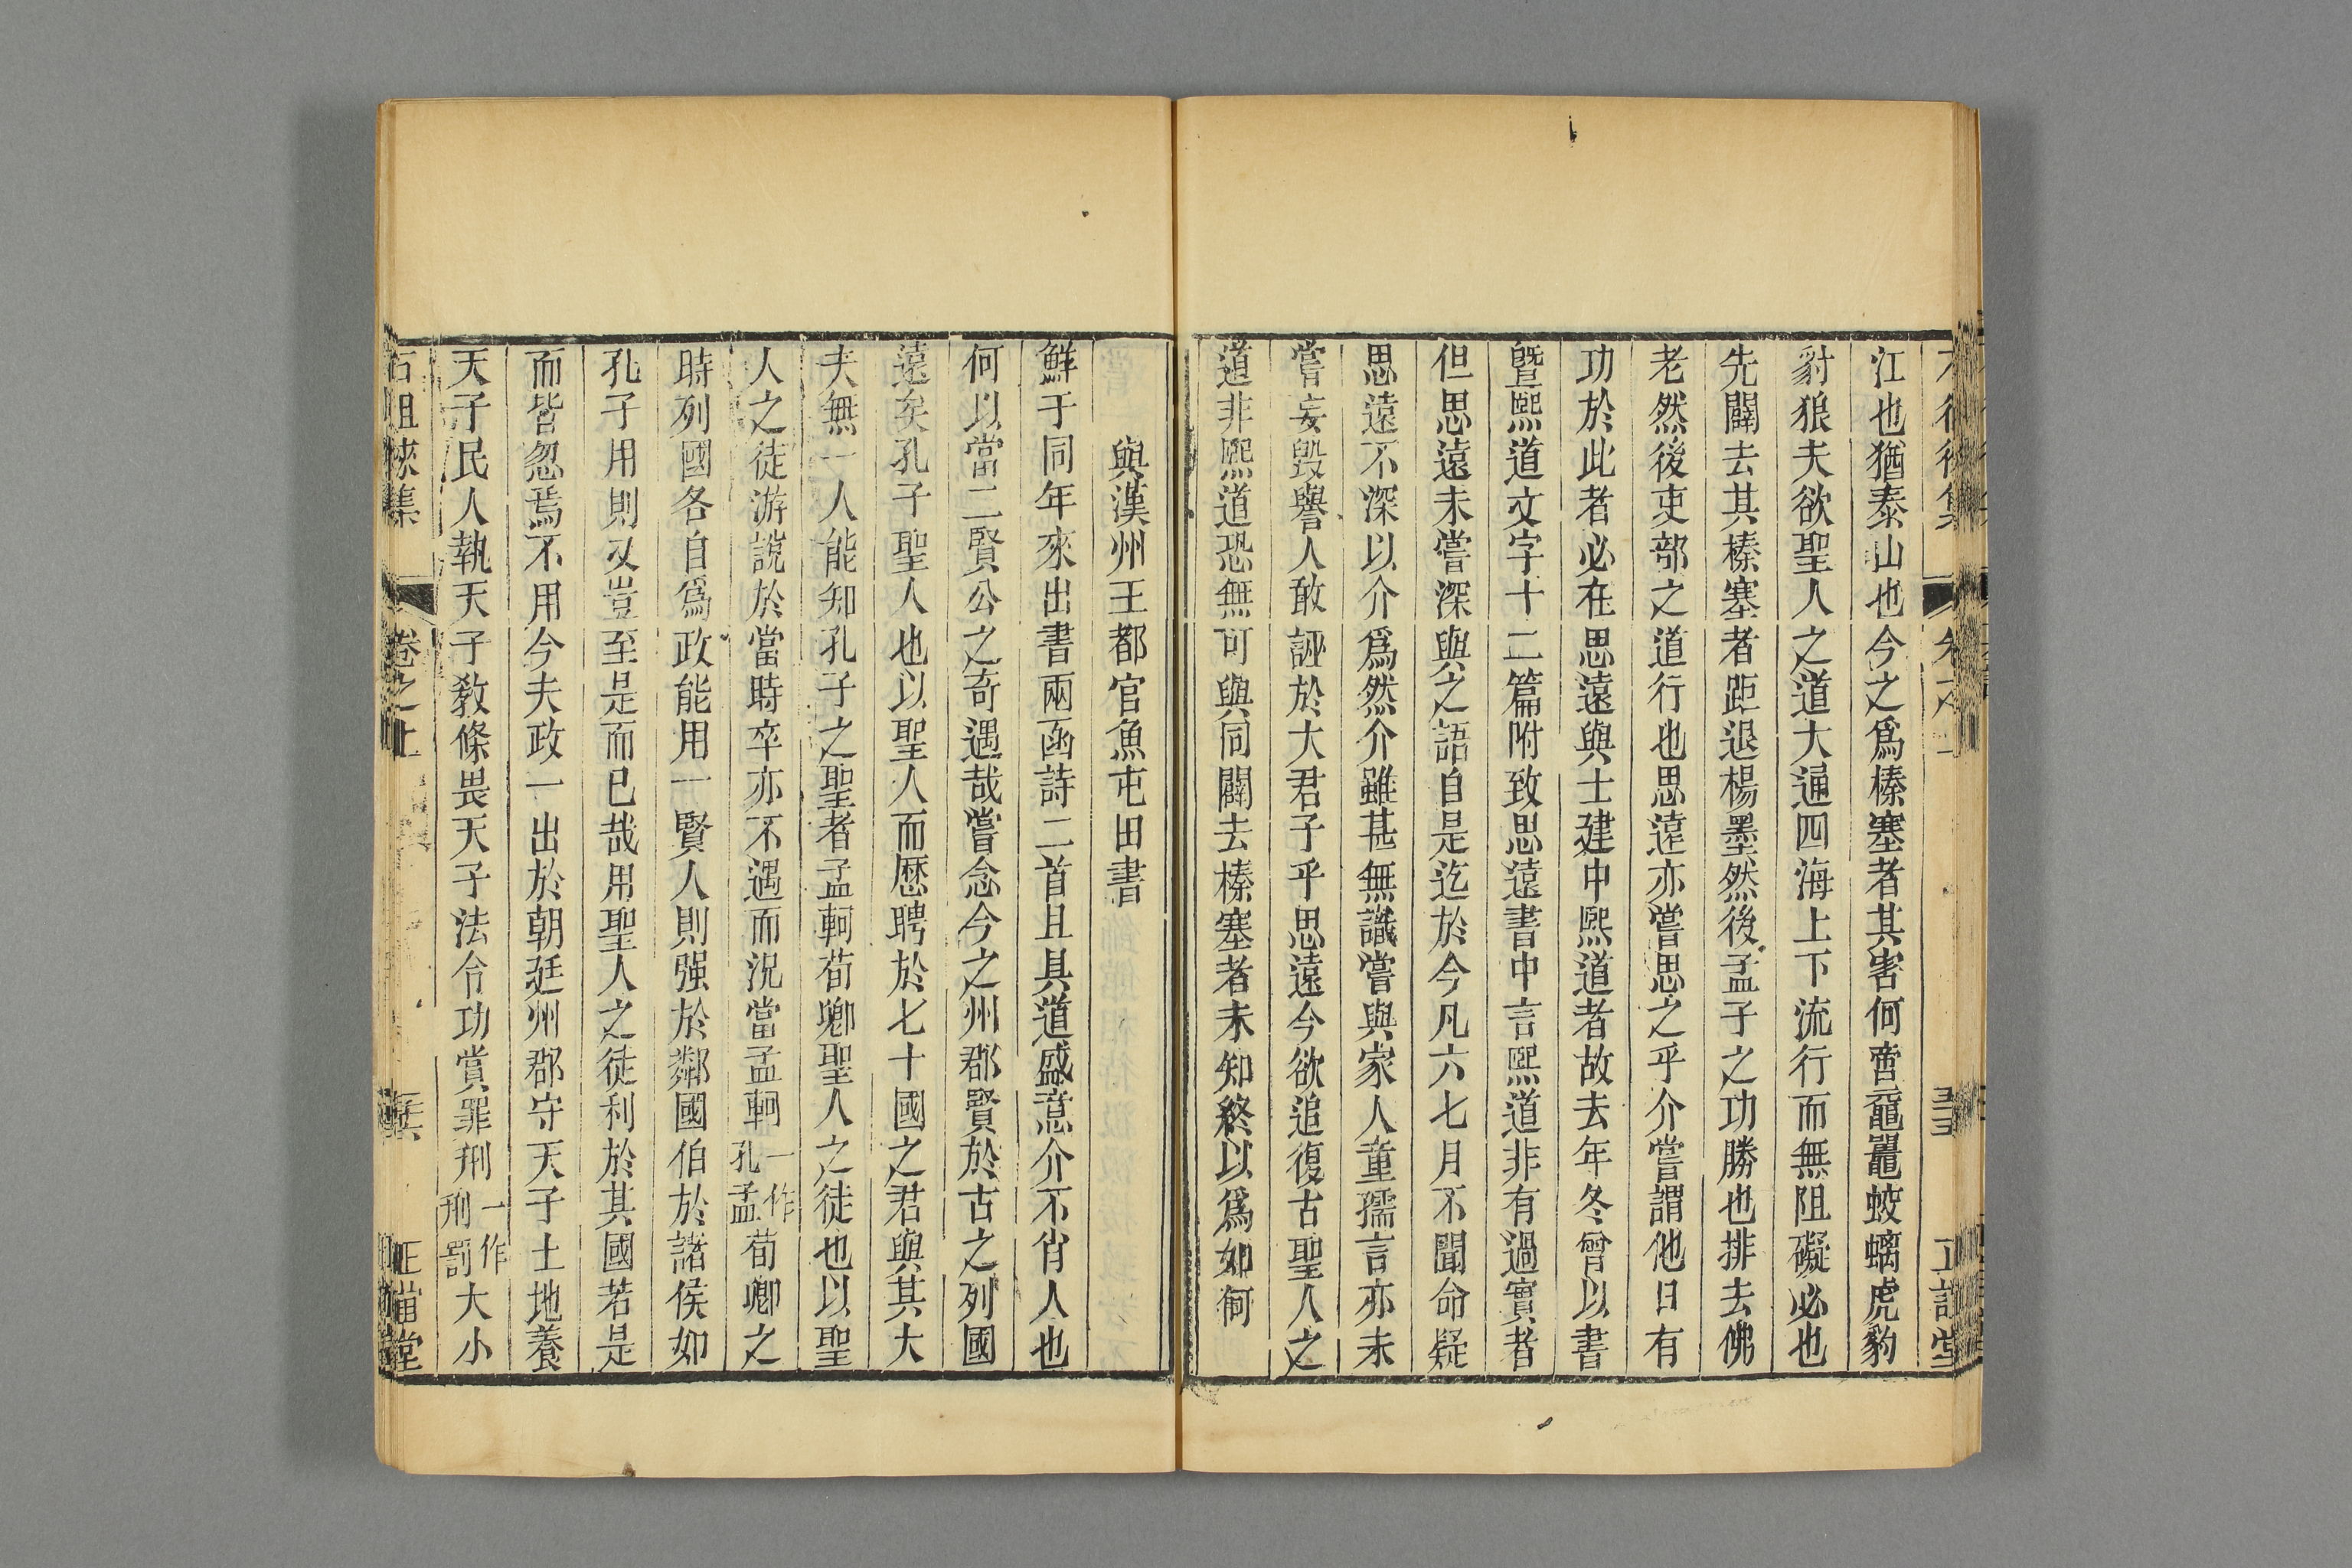 江也猶泰山也今之爲榛塞者其害何啻黿鼉蛟螭虎豹
豺狼夫欲聖人之道大通四海上下流行而無阻礙必也
先闢去其榛塞者距退楊墨然後孟子之功勝也排去佛
老然後吏部之道行也思遠亦嘗思之乎介嘗謂他日有
功於此者必在思遠與士建中熙道者故去年冬曾以書
曁熙道文字十二篇附致思遠書中言熙道非有過實者
但思遠未嘗深與之語自是迄於今凡六七月不聞命疑
思遠不深以介爲然介雖甚無識嘗與家人童孺言亦未
嘗妄毀譽人敢誣於大君子乎思遠今欲追復古聖人之
道非熙道恐無可與同闢去榛塞者未知終以爲如何
與漢州王都官魚屯田書
鮮于同年來出書兩函詩二首且具道盛意介不肖人也
何以當二賢公之奇遇哉嘗念今之州郡賢於古之列國
遠矣孔子聖人也以聖人而歷聘於七十國之君與其大
夫無一人能知孔子之聖者孟軻荀卿聖人之徒也以聖
人之徒游說於當時卒亦不遇而況當孟軻一作孔孟荀卿之
時列國各自爲政能用一賢人則强於鄰國伯於諸侯如
孔子用則又豈至是而已哉用聖人之徒利於其國若是
而皆忽焉不用今夫政一出於朝廷州郡守天子土地養
天子民人執天子敎條畏天子法令功賞罪刑一作刑罰大小
石徂徠集 卷之上 正誼堂